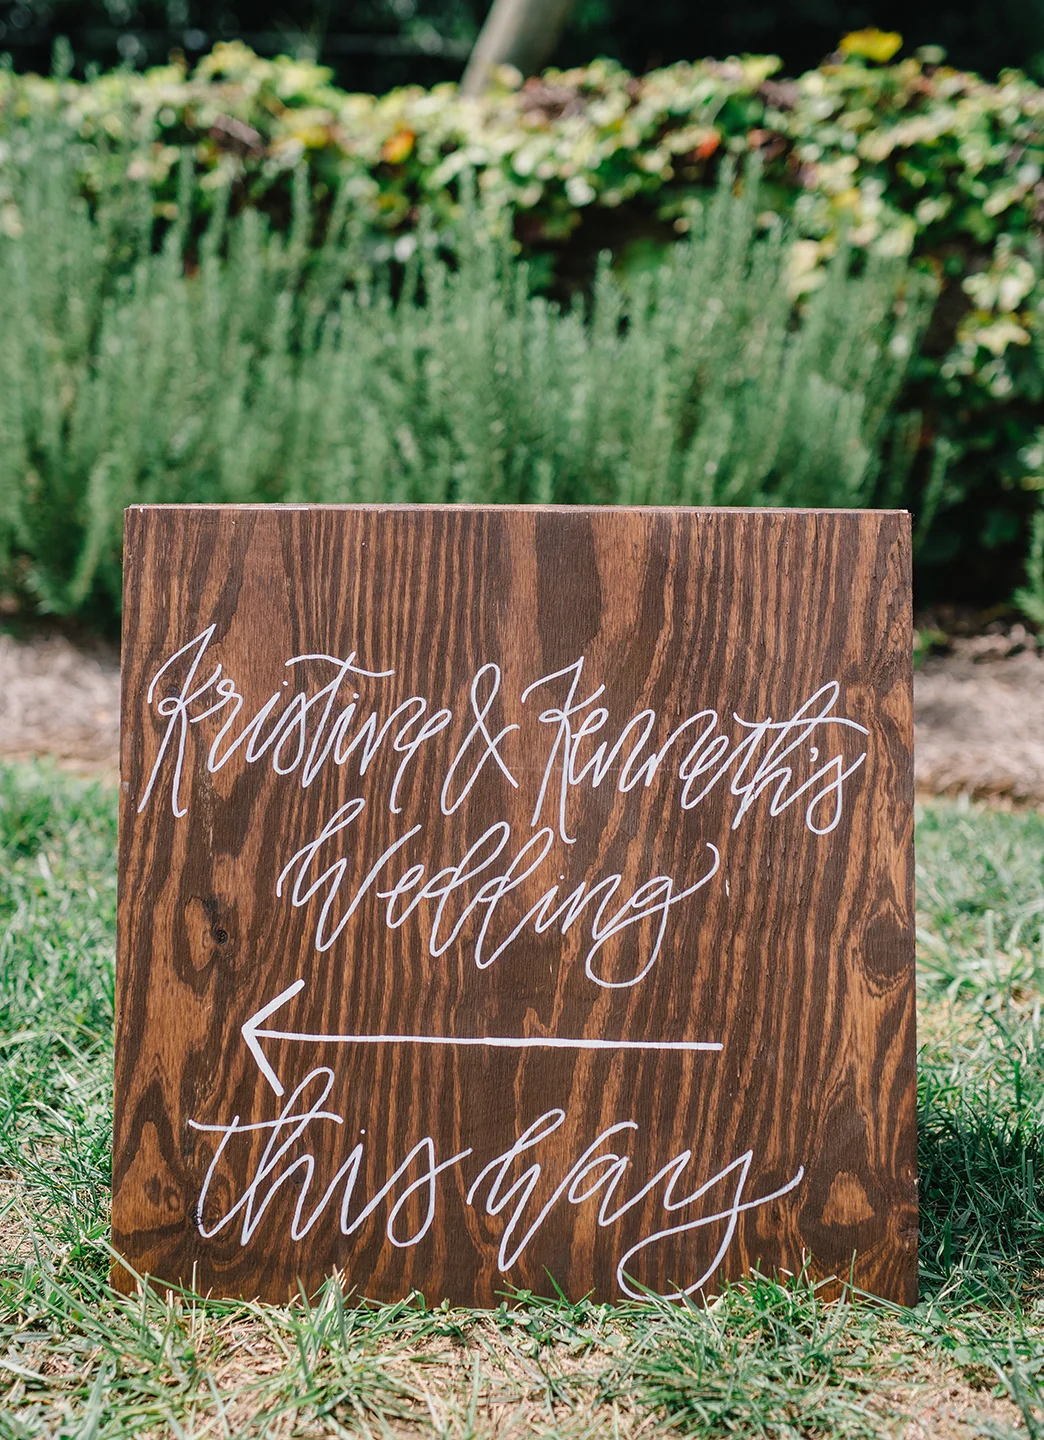 Kristine & Kenneth's
Wedding
this way